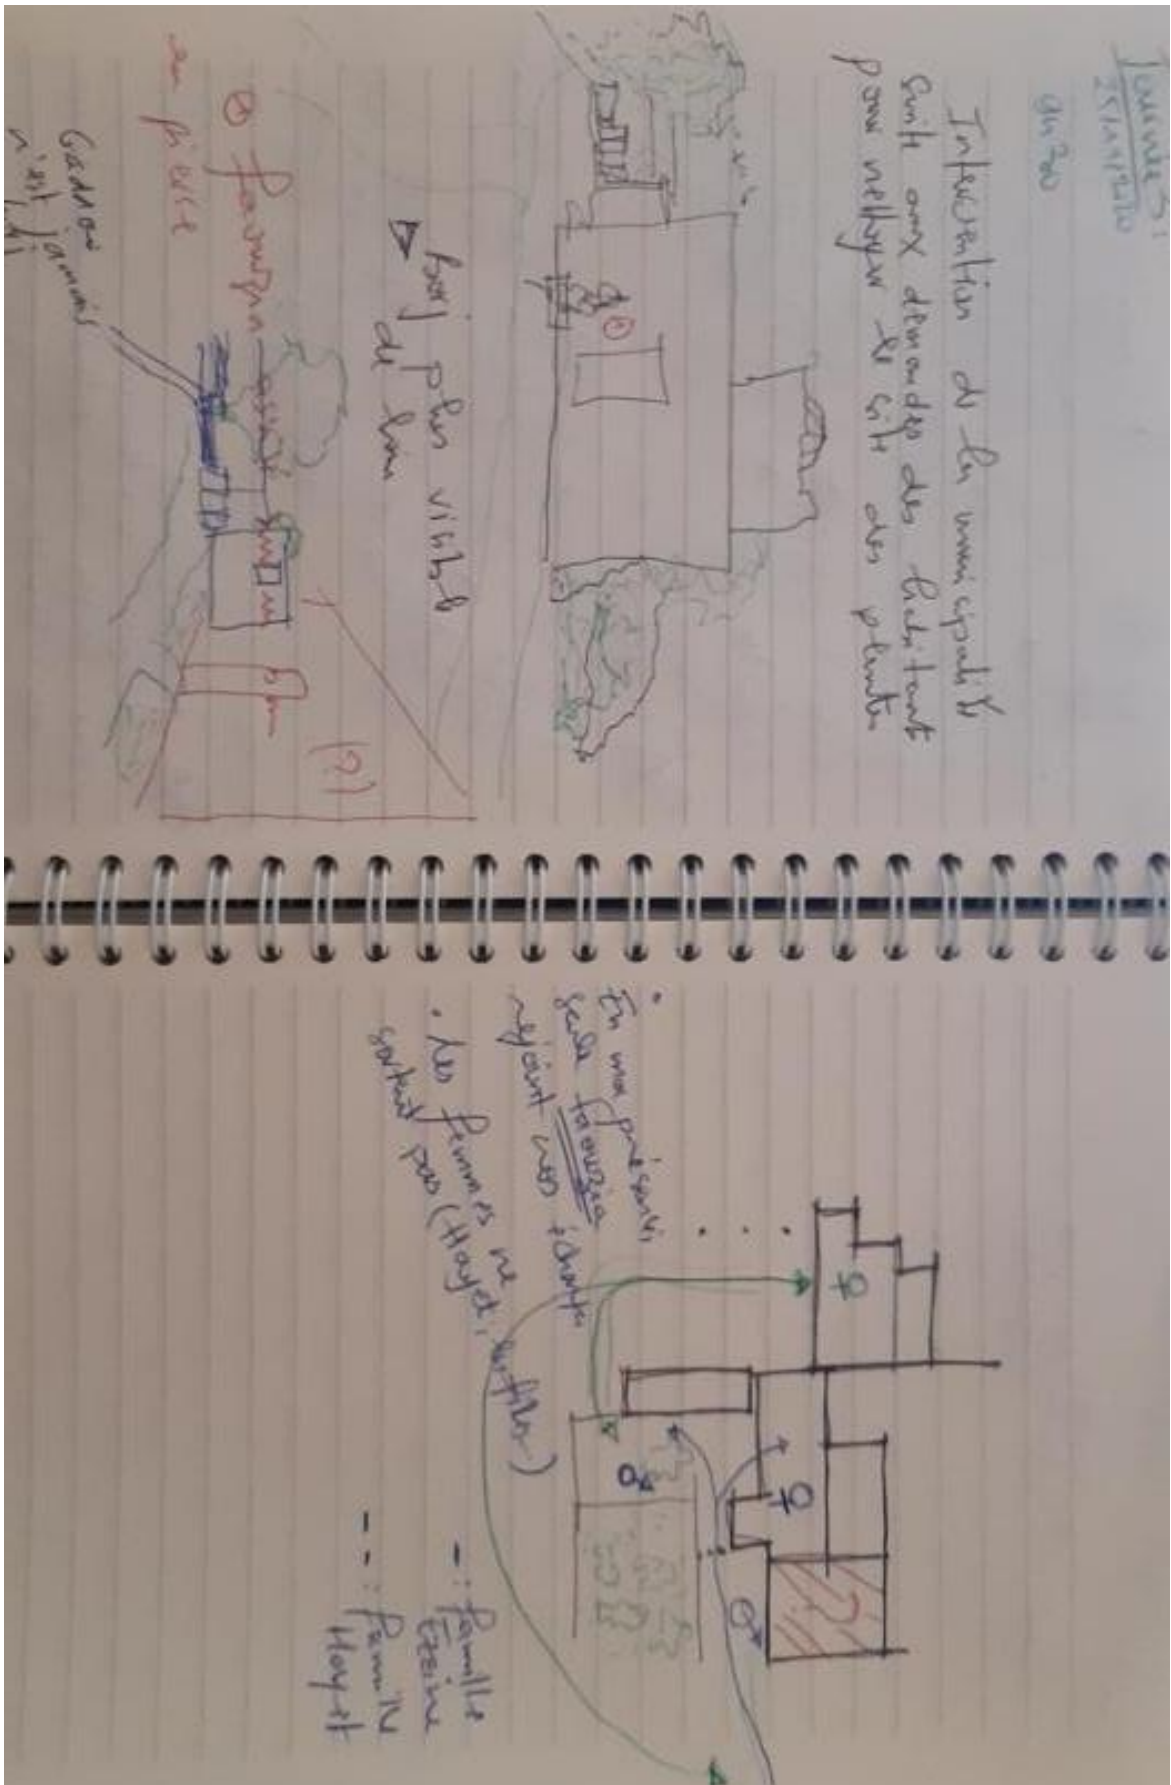 Journée 5:
25/11/2020
9h30
Intervention de la municipalité
suite aux demandes des habitant
pour nettoyer le site des plantes
①
borj plus visible
de loin
① faouzia assise sur un
en pierre
Gaddour
n'est jamais
(?)
En ma présence,
seule faouzia
rejoint nos échanges
. Les femmes ne
sortent pas (Hayet, les filles)
- : famille
Ezzine
-- : famille
Hayet